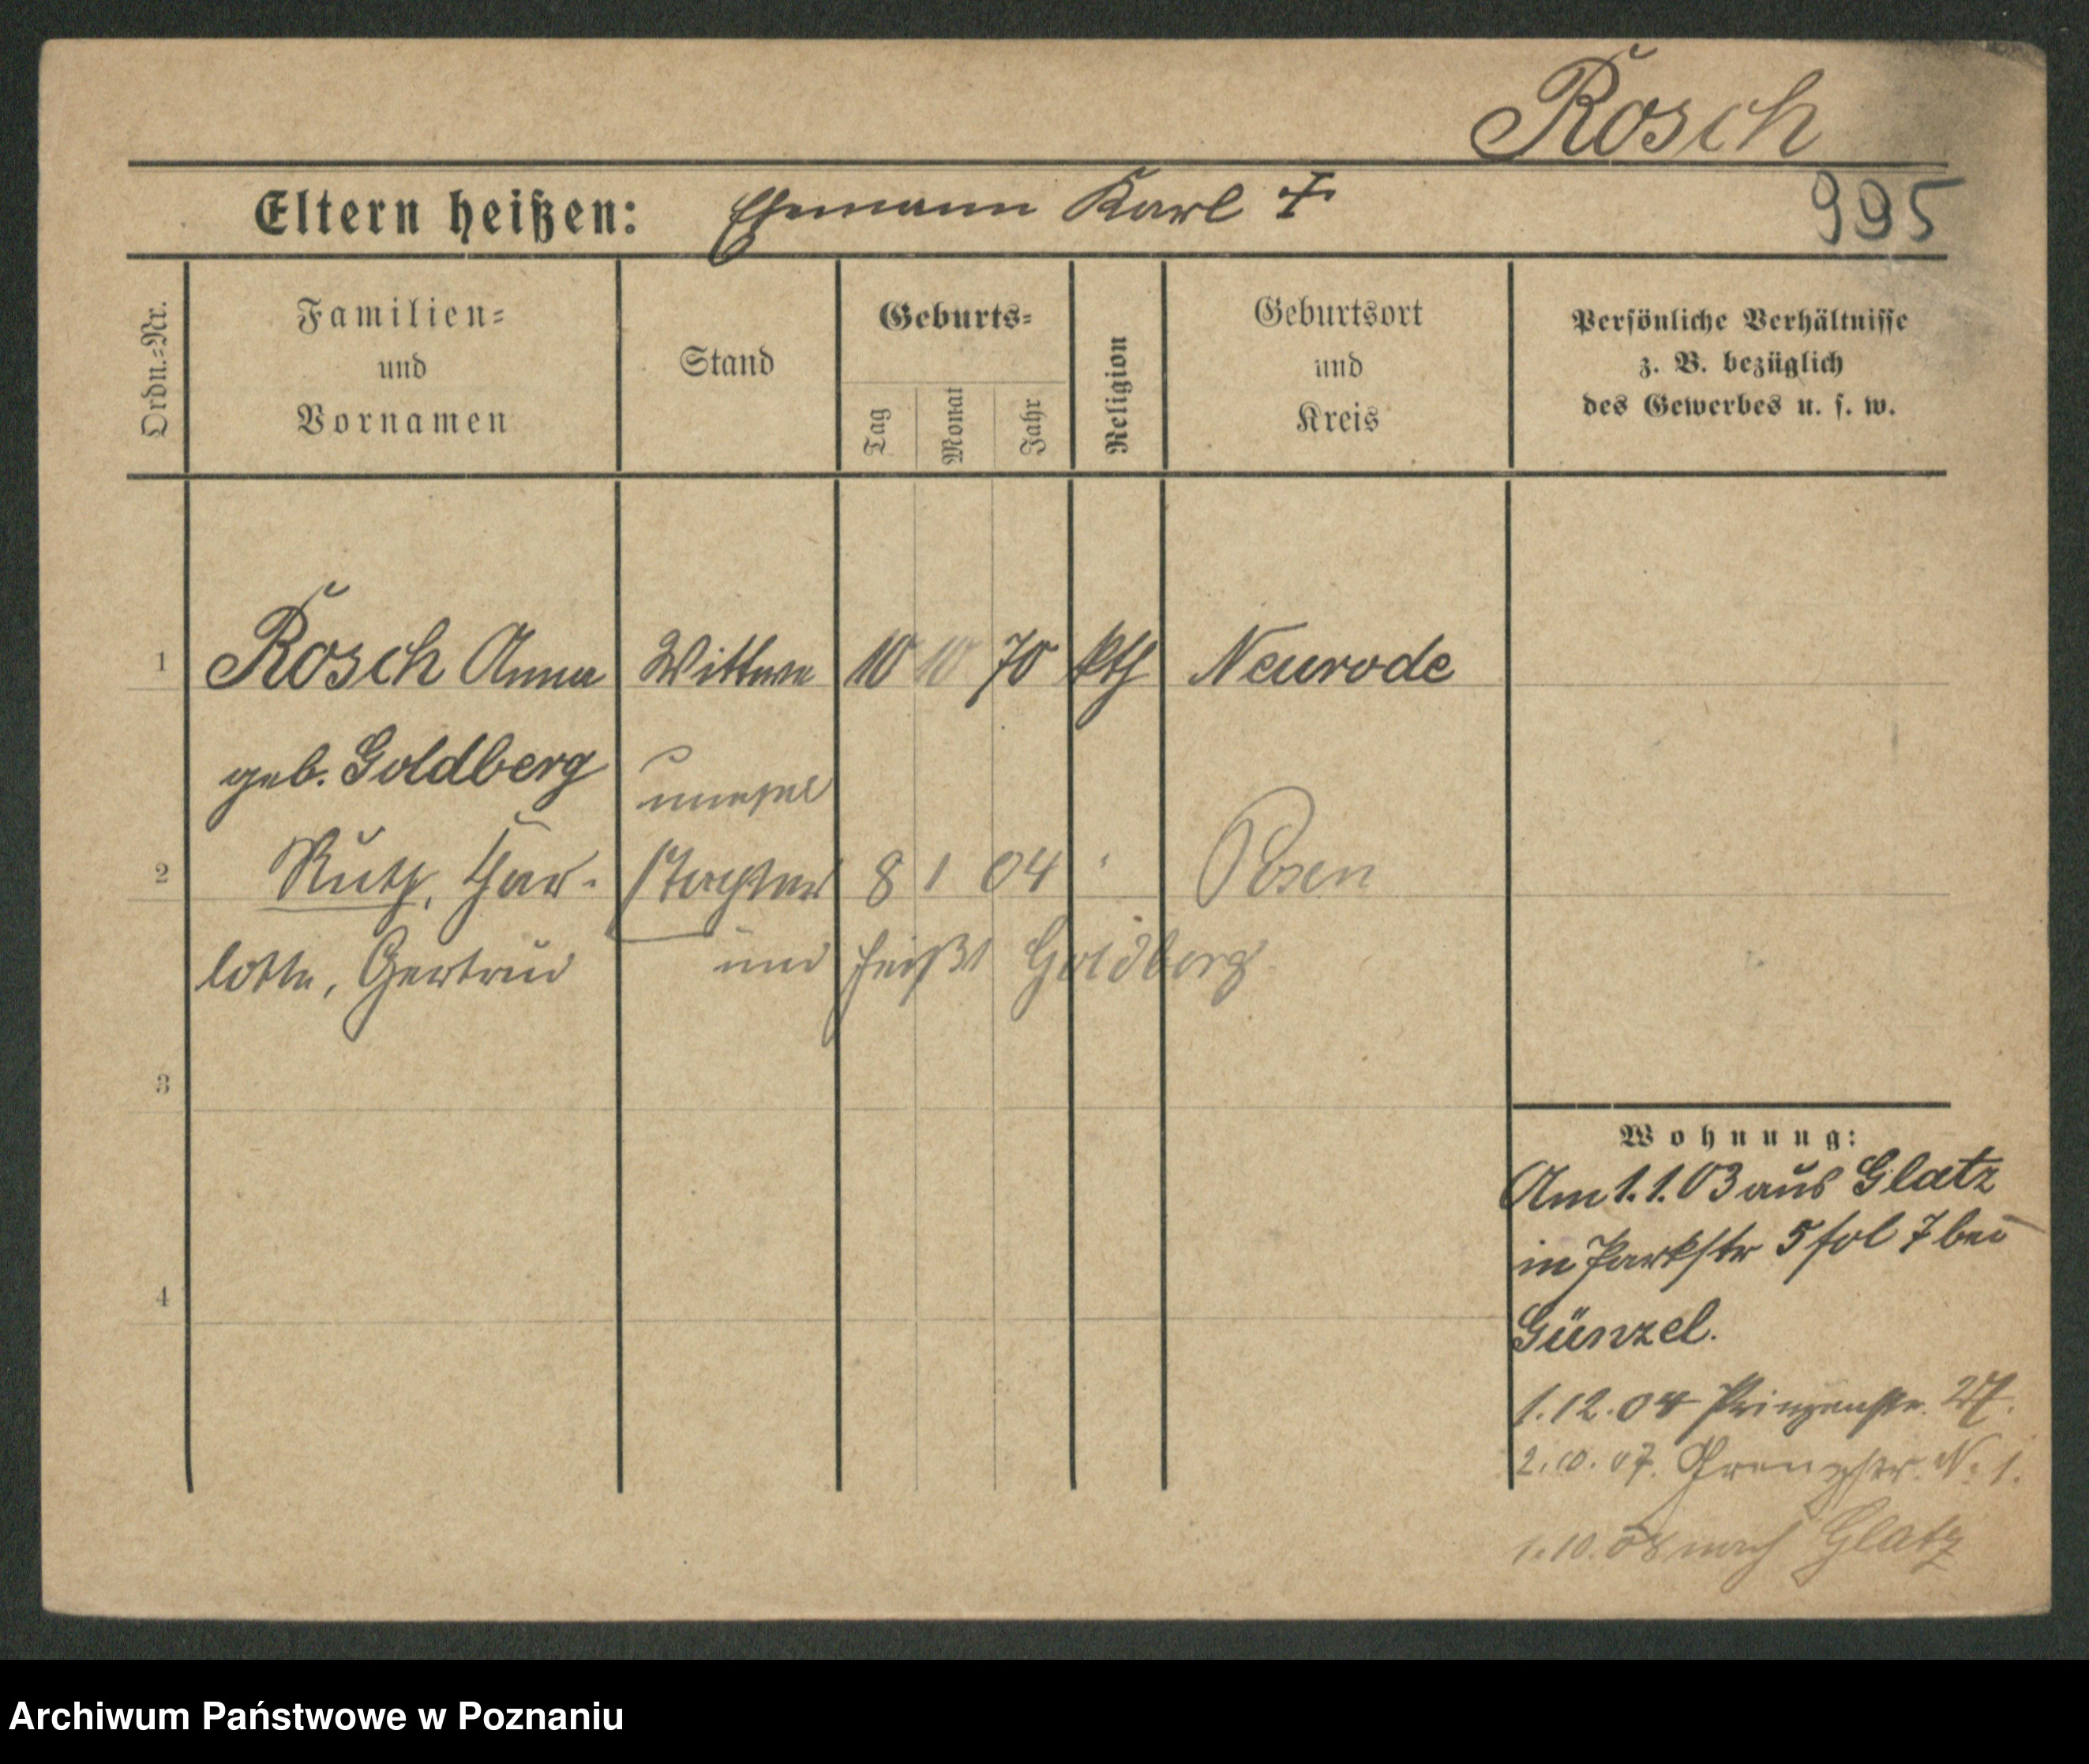 Rosch
Eltern heißen: Ehemann Karl †
995
Ordn.=Nr.
Familien=
und
Vornamen
Stand
Geburts=
Tag
Monat
Jahr
Religion
Geburtsort
und
Kreis
Persönliche Verhältnisse
z. B. bezüglich
des Gewerbes u. s. w.
1 Rosch Anna Wittwe 10 10 70 kth Neurode
geb. Goldberg
unehel
2 Ruth, Char- Tochter 8 1 04 " Posen
lotte, Gertrud und heißt Goldberg
3
4
Wohnung:
Am 1.1.03 aus Glatz
in Parkstr 5 fol 7 bei
Günzel.
1.12.04 Prinzenstr. 27.
2.10.07. Grenzstr. N. 1.
1.10.08 nach Glatz
Archiwum Państwowe w Poznaniu